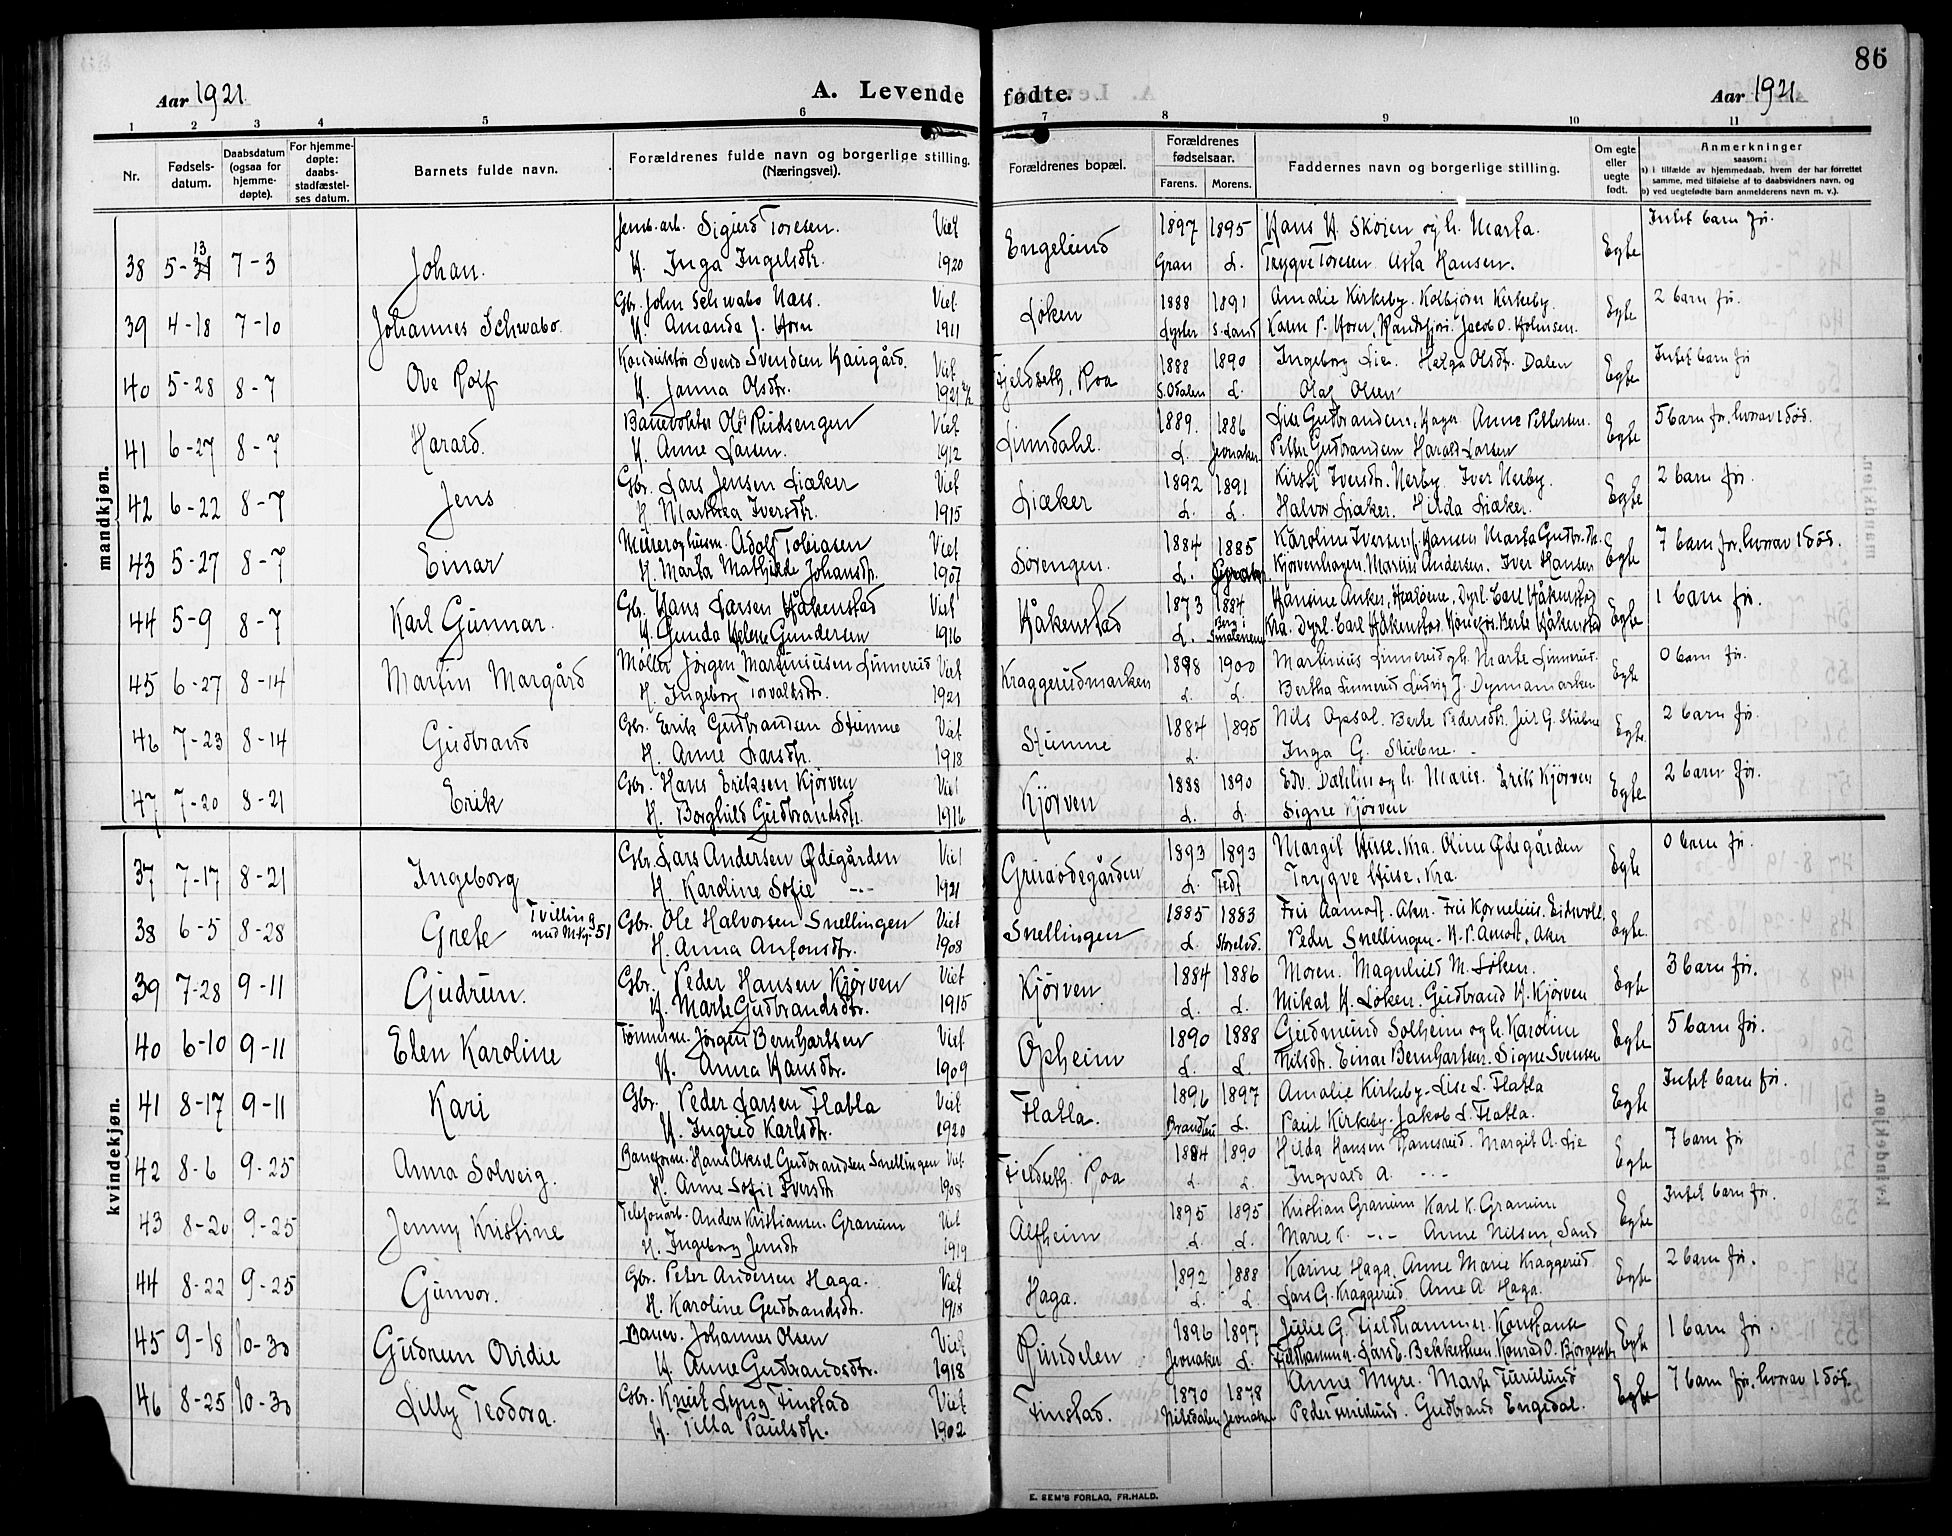 86
Aar 1921
A. Levende fødte.
Aar 1921
1 2 3 4 5 6 7 8 9 10 11
Nr.
Fødsels-
datum.
Daabsdatum
(ogsaa for
hjemme-
døpte).
For hjemme-
døpte:
daabs-
stadfæstel-
ses datum.
Barnets fulde navn.
Forældrenes fulde navn og borgerlige stilling.
(Næringsvei).
Forældrenes bopæl.
Forældrenes
fødselsaar.
Farens. Morens.
Faddernes navn og borgerlige stilling.
Om egte
eller
uegte
født.
Anmerkninger
saasom:
a) i tilfælde av hjemmedaab, hvem der har forrettet
samme, med tilføielse af to daabsvidners navn, og
b) ved uegtefødte barn anmelderens navn m. v.).
mandkjøn.
Jernb. arb. Sigurd Toresen. Viet 1897 1895 Hans H. Skøien og h. Marta. Intet barn før.
38 5-13 7-3 Johan. H. Inga Ingelsdtr. 1920 Engelund Gran L. Trygve Toresen Asta Hansen. Egte
Gbr. John Schwabo Næss. Viet 1888 1891 Amalie Kirkeby. Kolbjørn Kirkeby. 2 barn før.
39 4-18 7-10 Johannes Schwabo. H. Amanda J. Horn 1911 Løken Lyster S. Land Karen P. Horn, Randsfjord. Jacob O. Holmsen. Egte
Konduktør Svend Svendsen Haugård. Viet 1888 1890 Ingeborg Lie. Helga Olsdtr. Dalen Intet barn før
40 5-28 8-7 Ove Rolf H. Janna Olsdtr. 1921 Fjeldseth, Roa S. Odalen L. Olaf Olsen Egte
Banevokter Ole Rudsengen Viet 1889. 1886 Lise Gudbrandsen, Hager Anne Pettersen. 5 barn før, hvorav 1 død.
41 6-27 8-7 Harald. H. Anne Larsen. 1912 Linndahl. L. Jevnaker Petter Gudbrandsen Harald Larsen Egte
Gbr. Lars Jensen Liæker Viet 1892 1891 Kirsti Iversdtr. Nerby Iver Nerby. 2 barn før.
42 6-22 8-7 Jens H. Marthea Iversdtr. 1915 Liæker L. L. Halvor Liæker. Hilda Liæker. Egte
Adolf Tobiasen Viet 1884 1885 Karoline Iversen, Hansen Marta Gudbr. dtr. 7 barn før, hvorav 1 død.
43 5-27 8-7 Einar H. Marta Mathilde Johansdtr. 1907 Sørengen. L. Kjørvenhagen. Marius Andersen. Iver Hansen Egte
Gbr. Hans Larsen Håkenstad Viet 1873 1884 Hansine Anker, Dyrl. Carl Håkenstad 1 barn før.
44 5-9 8-7 Karl Gunnar. H. Gunda Helene Gundersen 1916 Håkenstad L. Smålenene Kra. Dyrl. Carl Håkenstad. Berte Håkenstad Egte
Møller Jørgen Martiniusen Linnerud Viet 1898 1900 Martinius Linnerud og h. Marte Linnerud. 0 barn før.
45 6-27 8-14 Martin Margård H. Ingeborg Torvaldsdtr. 1921 Kraggerudmarken L. L. Bertha Linnerud Ludvig J. Dynnamarken Egte
Gbr. Erik Gudbrandsen Stumne Viet 1884 1895 Nils Opsal. Berte Pedersdtr. 2 barn før.
46 7-23 8-14 Gudbrand H. Anne Larsdtr. 1918 Stumne L. Inga G. Stubne. Egte
Gbr. Hans Eriksen Kjørven Viet 1888 1890 Edv. Dahlin og h. Marie. Erik Kjørven 2 barn før.
47 7-20 8-21 Erik H. Borghild Gudbrandsdtr. 1916 Kjørven L. L. Signe Kjørven Egte
kvindekjøn.
Gbr. Lars Andersen Ødegården Viet 1893 1893 Margit Huse. Kra. Oline Ødegården 0 barn før.
37 7-17 8-21 Ingeborg H. Karoline Sofie -"- 1921 Grinaødegården L. Tedt Trygve Huse. Kra. Egte
Tvilling Gbr. Ole Halvorsen Snellingen Viet 1885 1883 Fru Aamodt. Aker. Fru Kornelius. Eidsvoll.
38 6-5 8-28 Grete med Mkj 51 H. Anna Antonsdtr. 1908 Snellingen L. Storelvd. Peder Snellingen. H. P. Åmodt, Aker Egte
Gbr. Peder Hansen Kjørven Viet 1884 1886 Moren. Magnhild M. Løken. 3 barn før.
39 7-28 9-11 Gudrun. H. Marte Gudbrandsdtr. 1915 Kjørven L. L. Mikal H. Løken. Gudbrand H. Kjørven Egte
Tømmerm. Jørgen Bernhartsen Viet 1890 1888 Gudmund Solheim og h. Karoline 5 barn før.
40 6-10 9-11 Elen Karoline H. Anna Hansdtr. 1909 Opheim L. L. Nilsdtr. Einar Bernhartsen. Signe Svensen Egte
Gbr. Peder Larsen Flatla Viet 1896 1897 Amalie Kirkeby. Lise L. Flatla Intet barn før.
41 8-17 9-11 Kari H. Ingrid Karlsdtr. 1920 Flatla. Brandbu L. Paul Kirkeby. Jakob L. Flatla. Egte
Baneform. Hans Aksel Gudbrandsen Snellingen Viet 1884 1890 Hilda Hansen Ramsrud. Margit A. Lie 7 barn før
42 8-6 9-25 Anna Solveig. H. Anne Sofie Iversdtr 1908 Fjeldseth. Roa L. L. Ingvald A. -"- Egte
Telefonarb. Anders Kristiansen Granum Viet 1895 1895 Kristian Granum Karl K. Granum Intet barn før.
43 8-20 9-25 Jenny Kristine H. Ingeborg Jensdtr 1919 Alfheim L. L. Marie K. -"- Anne Nilsen, Sand Egte
Gbr. Peter Andersen Haga. Viet 1892 1888 Karine Haga. Anne Marie Kraggerud 2 barn før.
44 8-22 9-25 Gunvor. H. Karoline Gudbrandsdtr. 1918 Haga. L. L. Lars G. Kraggerud. Anne A. Haga. Egte
Banev. Johannes Olsen Viet 1896 1897 Julie G. Fjeldhammer. Konstanse 1 barn før.
45 9-18 10-30 Gudrun Ovidie H. Anne Gudbrandsdtr. 1918 Rundelen Jevnaker L. Fjeldhammer. Lars E. Bekkerhuen. Konrad O. Borgeseter Egte
Gbr. Knut Lyng Finstad Viet 1870 1878 Anne Myre. Marte Furulund 7 barn før, hvorav 1 død.
46 8-25 10-30 Lilly Teodora. H. Tilla Paulsdtr. 1902 Finstad. Nitedalen Jevnaker Peder Furulund. Gudbrand Engedal. Egte
E. SEM'S FORLAG, FR.HALD.